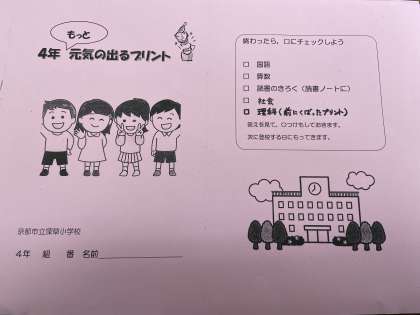 もっと
4年 元気の出るプリント
京都市立深草小学校
4年 組 番 名前
終わったら，□にチェックしよう
□ 国語
□ 算数
□ 読書のきろく（読書ノートに）
□ 社会
□ 理科（前にくばったプリント）
答えを見て，○つけもしておきます。
次に登校する日にもってきます。